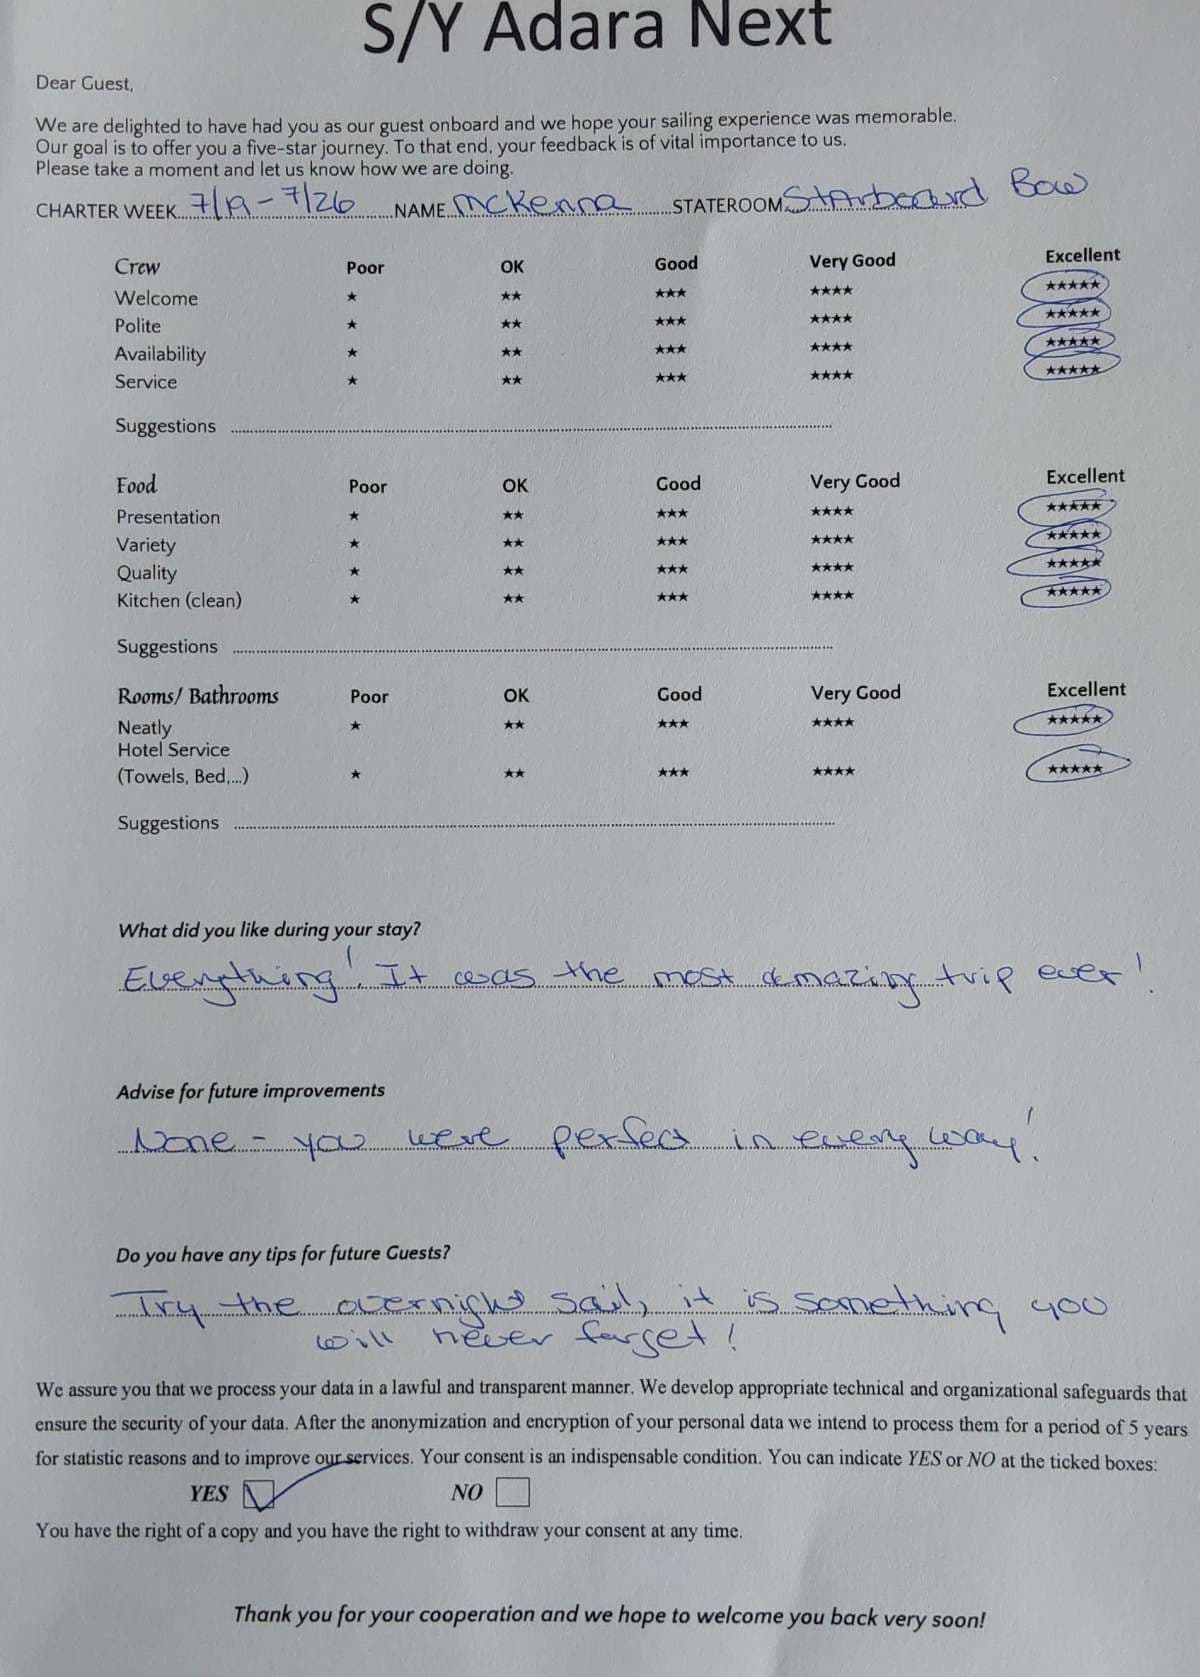 S/Y Adara Next
Dear Guest,
We are delighted to have had you as our guest onboard and we hope your sailing experience was memorable.
Our goal is to offer you a five-star journey. To that end, your feedback is of vital importance to us.
Please take a moment and let us know how we are doing.
CHARTER WEEK 7/19 - 7/26 NAME McKenna STATEROOM Starboard Bow
Crew Poor OK Good Very Good Excellent
Welcome ★ ★★ ★★★ ★★★★ ★★★★★
Polite ★ ★★ ★★★ ★★★★ ★★★★★
Availability ★ ★★ ★★★ ★★★★ ★★★★★
Service ★ ★★ ★★★ ★★★★ ★★★★★
Suggestions
Food Poor OK Good Very Good Excellent
Presentation ★ ★★ ★★★ ★★★★ ★★★★★
Variety ★ ★★ ★★★ ★★★★ ★★★★★
Quality ★ ★★ ★★★ ★★★★ ★★★★★
Kitchen (clean) ★ ★★ ★★★ ★★★★ ★★★★★
Suggestions
Rooms/ Bathrooms Poor OK Good Very Good Excellent
Neatly ★ ★★ ★★★ ★★★★ ★★★★★
Hotel Service
(Towels, Bed,...) ★ ★★ ★★★ ★★★★ ★★★★★
Suggestions
What did you like during your stay?
Everything! It was the most amazing trip ever!
Advise for future improvements
None - you were perfect in every way!
Do you have any tips for future Guests?
Try the overnight sail, it is something you
will never forget!
We assure you that we process your data in a lawful and transparent manner. We develop appropriate technical and organizational safeguards that
ensure the security of your data. After the anonymization and encryption of your personal data we intend to process them for a period of 5 years
for statistic reasons and to improve our services. Your consent is an indispensable condition. You can indicate YES or NO at the ticked boxes:
YES NO
You have the right of a copy and you have the right to withdraw your consent at any time.
Thank you for your cooperation and we hope to welcome you back very soon!